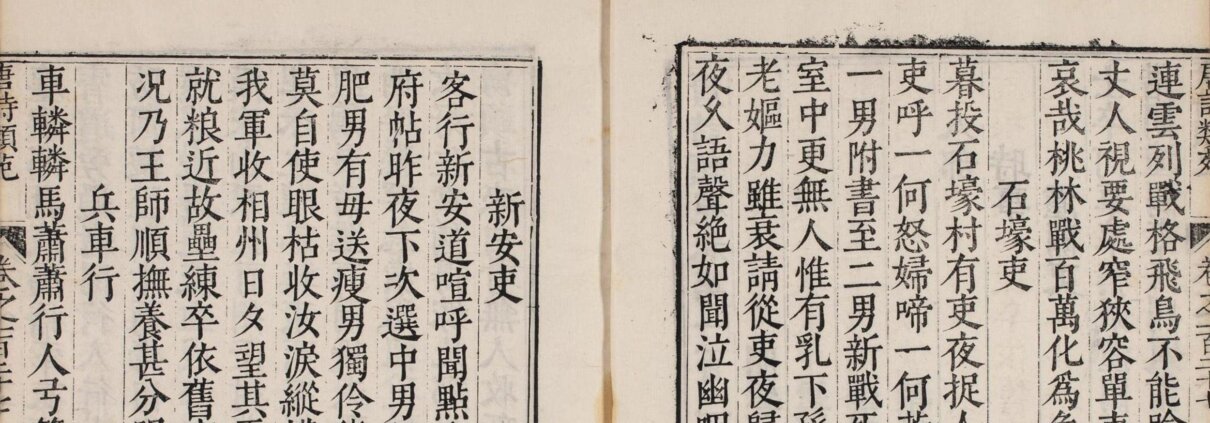 連雲列戰格飛鳥不能踰
丈人視要處窄狹容單車
哀哉桃林戰百萬化爲魚
石壕吏
暮投石壕村有吏夜捉人
吏呼一何怒婦啼一何苦
一男附書至二男新戰死
室中更無人惟有乳下孫
老嫗力雖衰請從吏夜歸
夜久語聲絕如聞泣幽咽
新安吏
客行新安道喧呼聞點
府帖昨夜下次選中男
肥男有母送瘦男獨伶
莫自使眼枯收汝淚縱橫
我軍收相州日夕望其
就粮近故壘練卒依舊
況乃王師順撫養甚分明
兵車行
車轔轔馬蕭蕭行人弓箭
唐詩類苑 卷之一百三十七